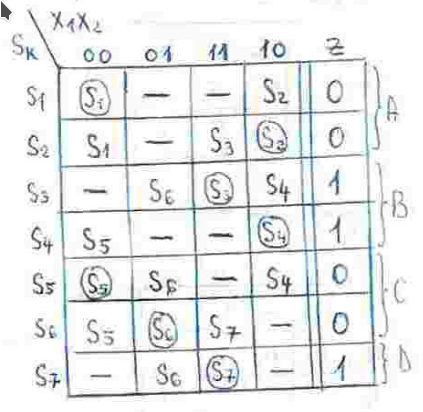 X1X2
SK 00 01 11 10 Z
S1 S1 — — S2 0 A
S2 S1 — S3 S2 0
S3 — S6 S3 S4 1 B
S4 S5 — — S4 1
S5 S5 S6 — S4 0 C
S6 S5 S6 S7 — 0
S7 — S6 S7 1 D